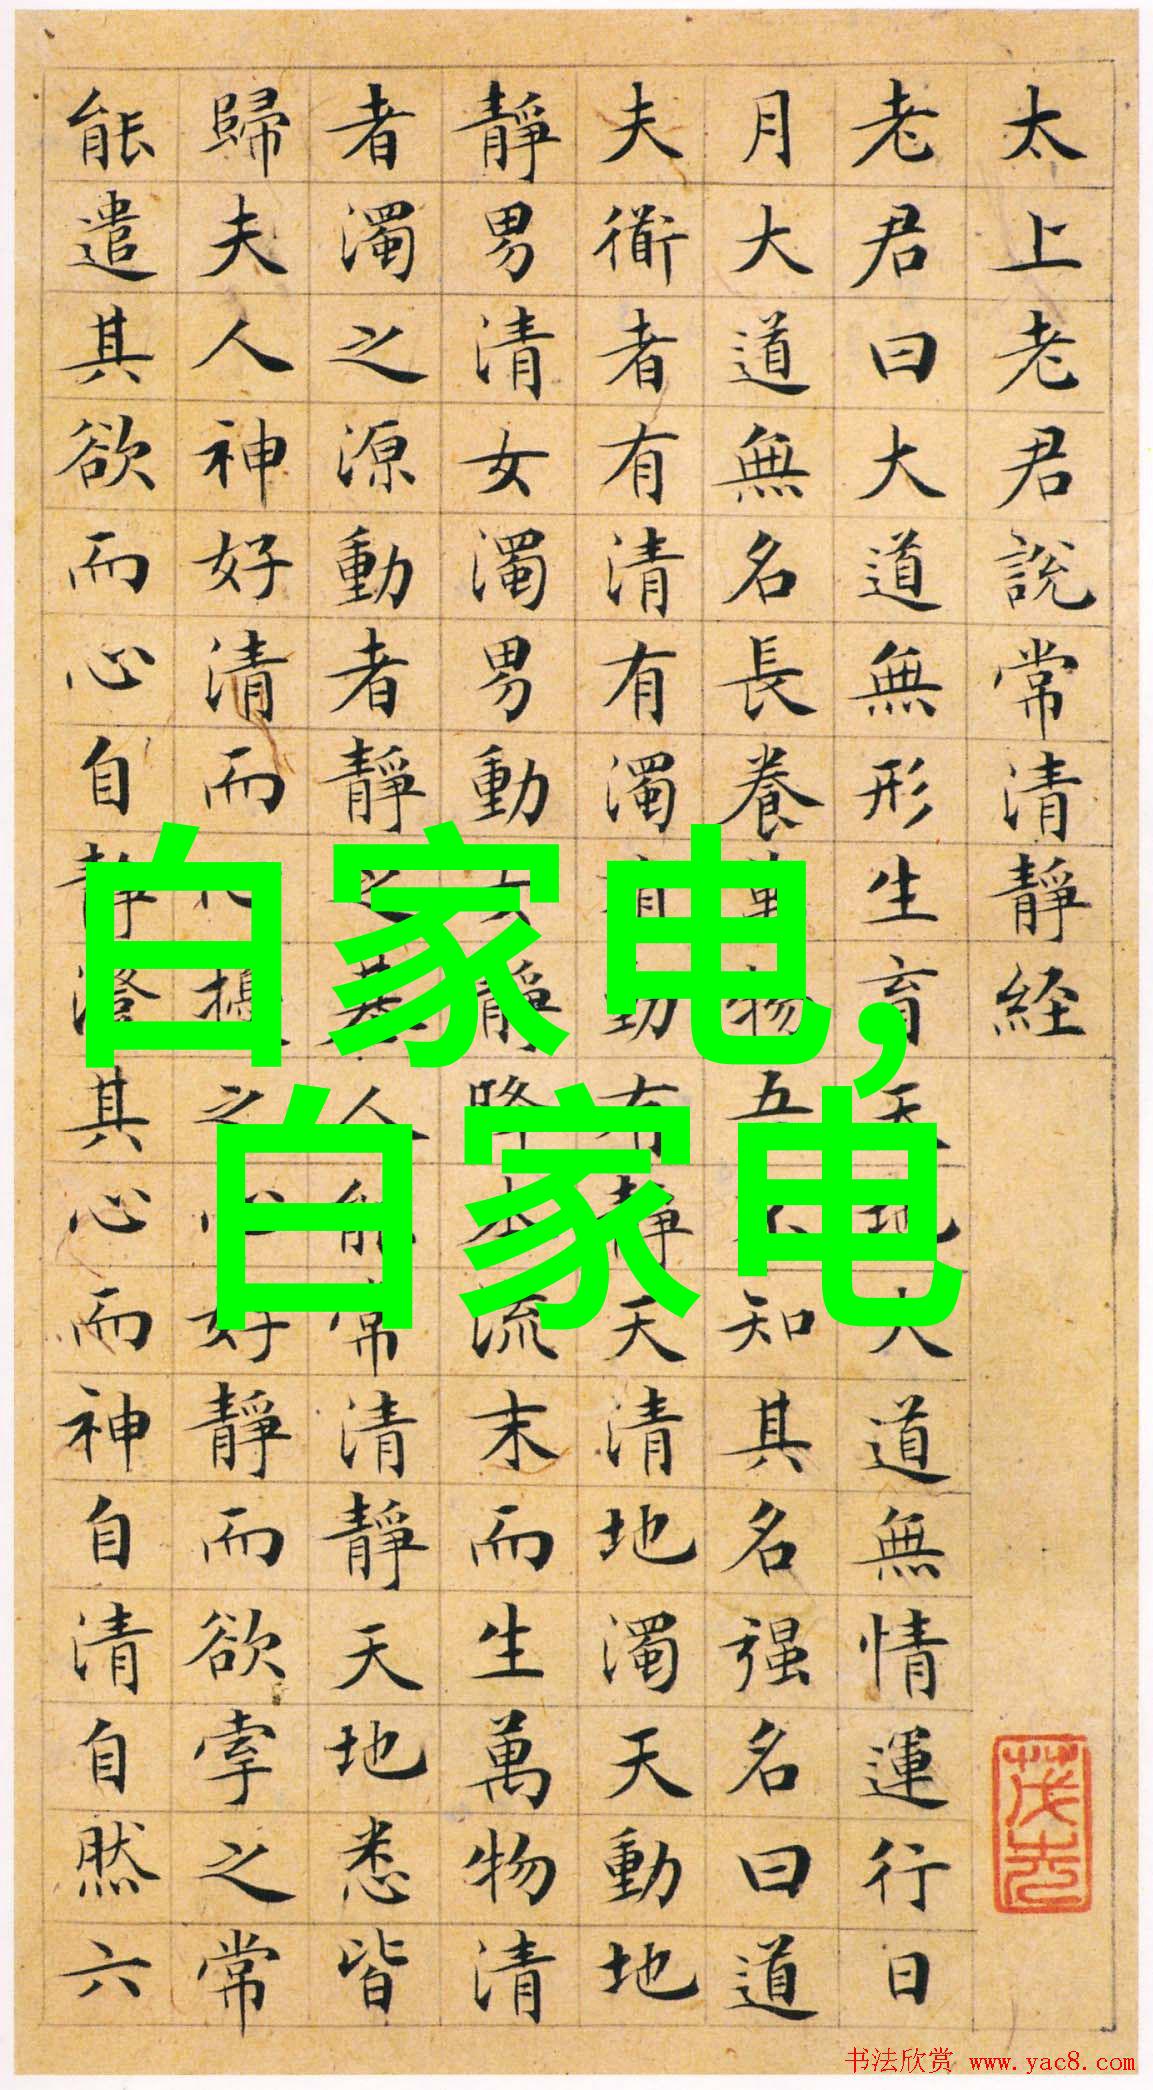 太上老君說常清靜経
老君曰大道無形生育天地大道無情運行日
月大道無名長養萬物吾不知其名强名曰道
夫衜者有清有濁有動有靜天清地濁天動地
靜男清女濁男動女靜降本流末而生萬物清
者濁之源動者靜之基人能常清靜天地悉皆
歸夫人神好清而心擾之心好靜而欲牽之常
能遣其欲而心自靜澄其心而神自清自然六
白家电,
白家电
书法欣赏 www.yac8.com